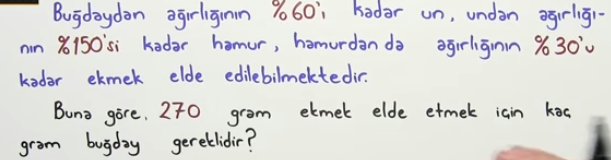 Buğdaydan ağırlığının %60'ı kadar un, undan ağırlığı-
nın %150'si kadar hamur, hamurdan da ağırlığının %30'u
kadar ekmek elde edilebilmektedir.
Buna göre, 270 gram ekmek elde etmek için kaç
gram buğday gereklidir?